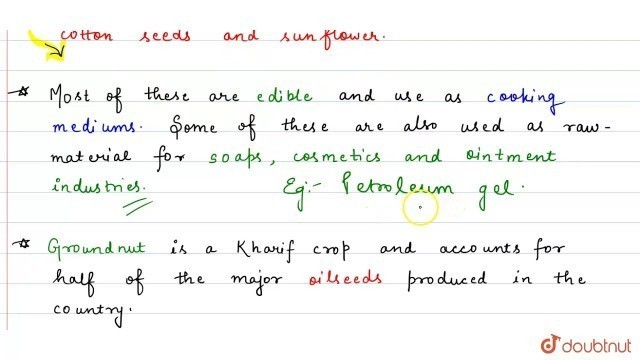 cotton seeds and sunflower.
☆ Most of these are edible and use as cooking
mediums. Some of these are also used as raw-
material for soaps, cosmetics and ointment
industries. Eg:- Petroleum gel.
☆ Groundnut is a Kharif crop and accounts for
half of the major oilseeds produced in the
country.
doubtnut